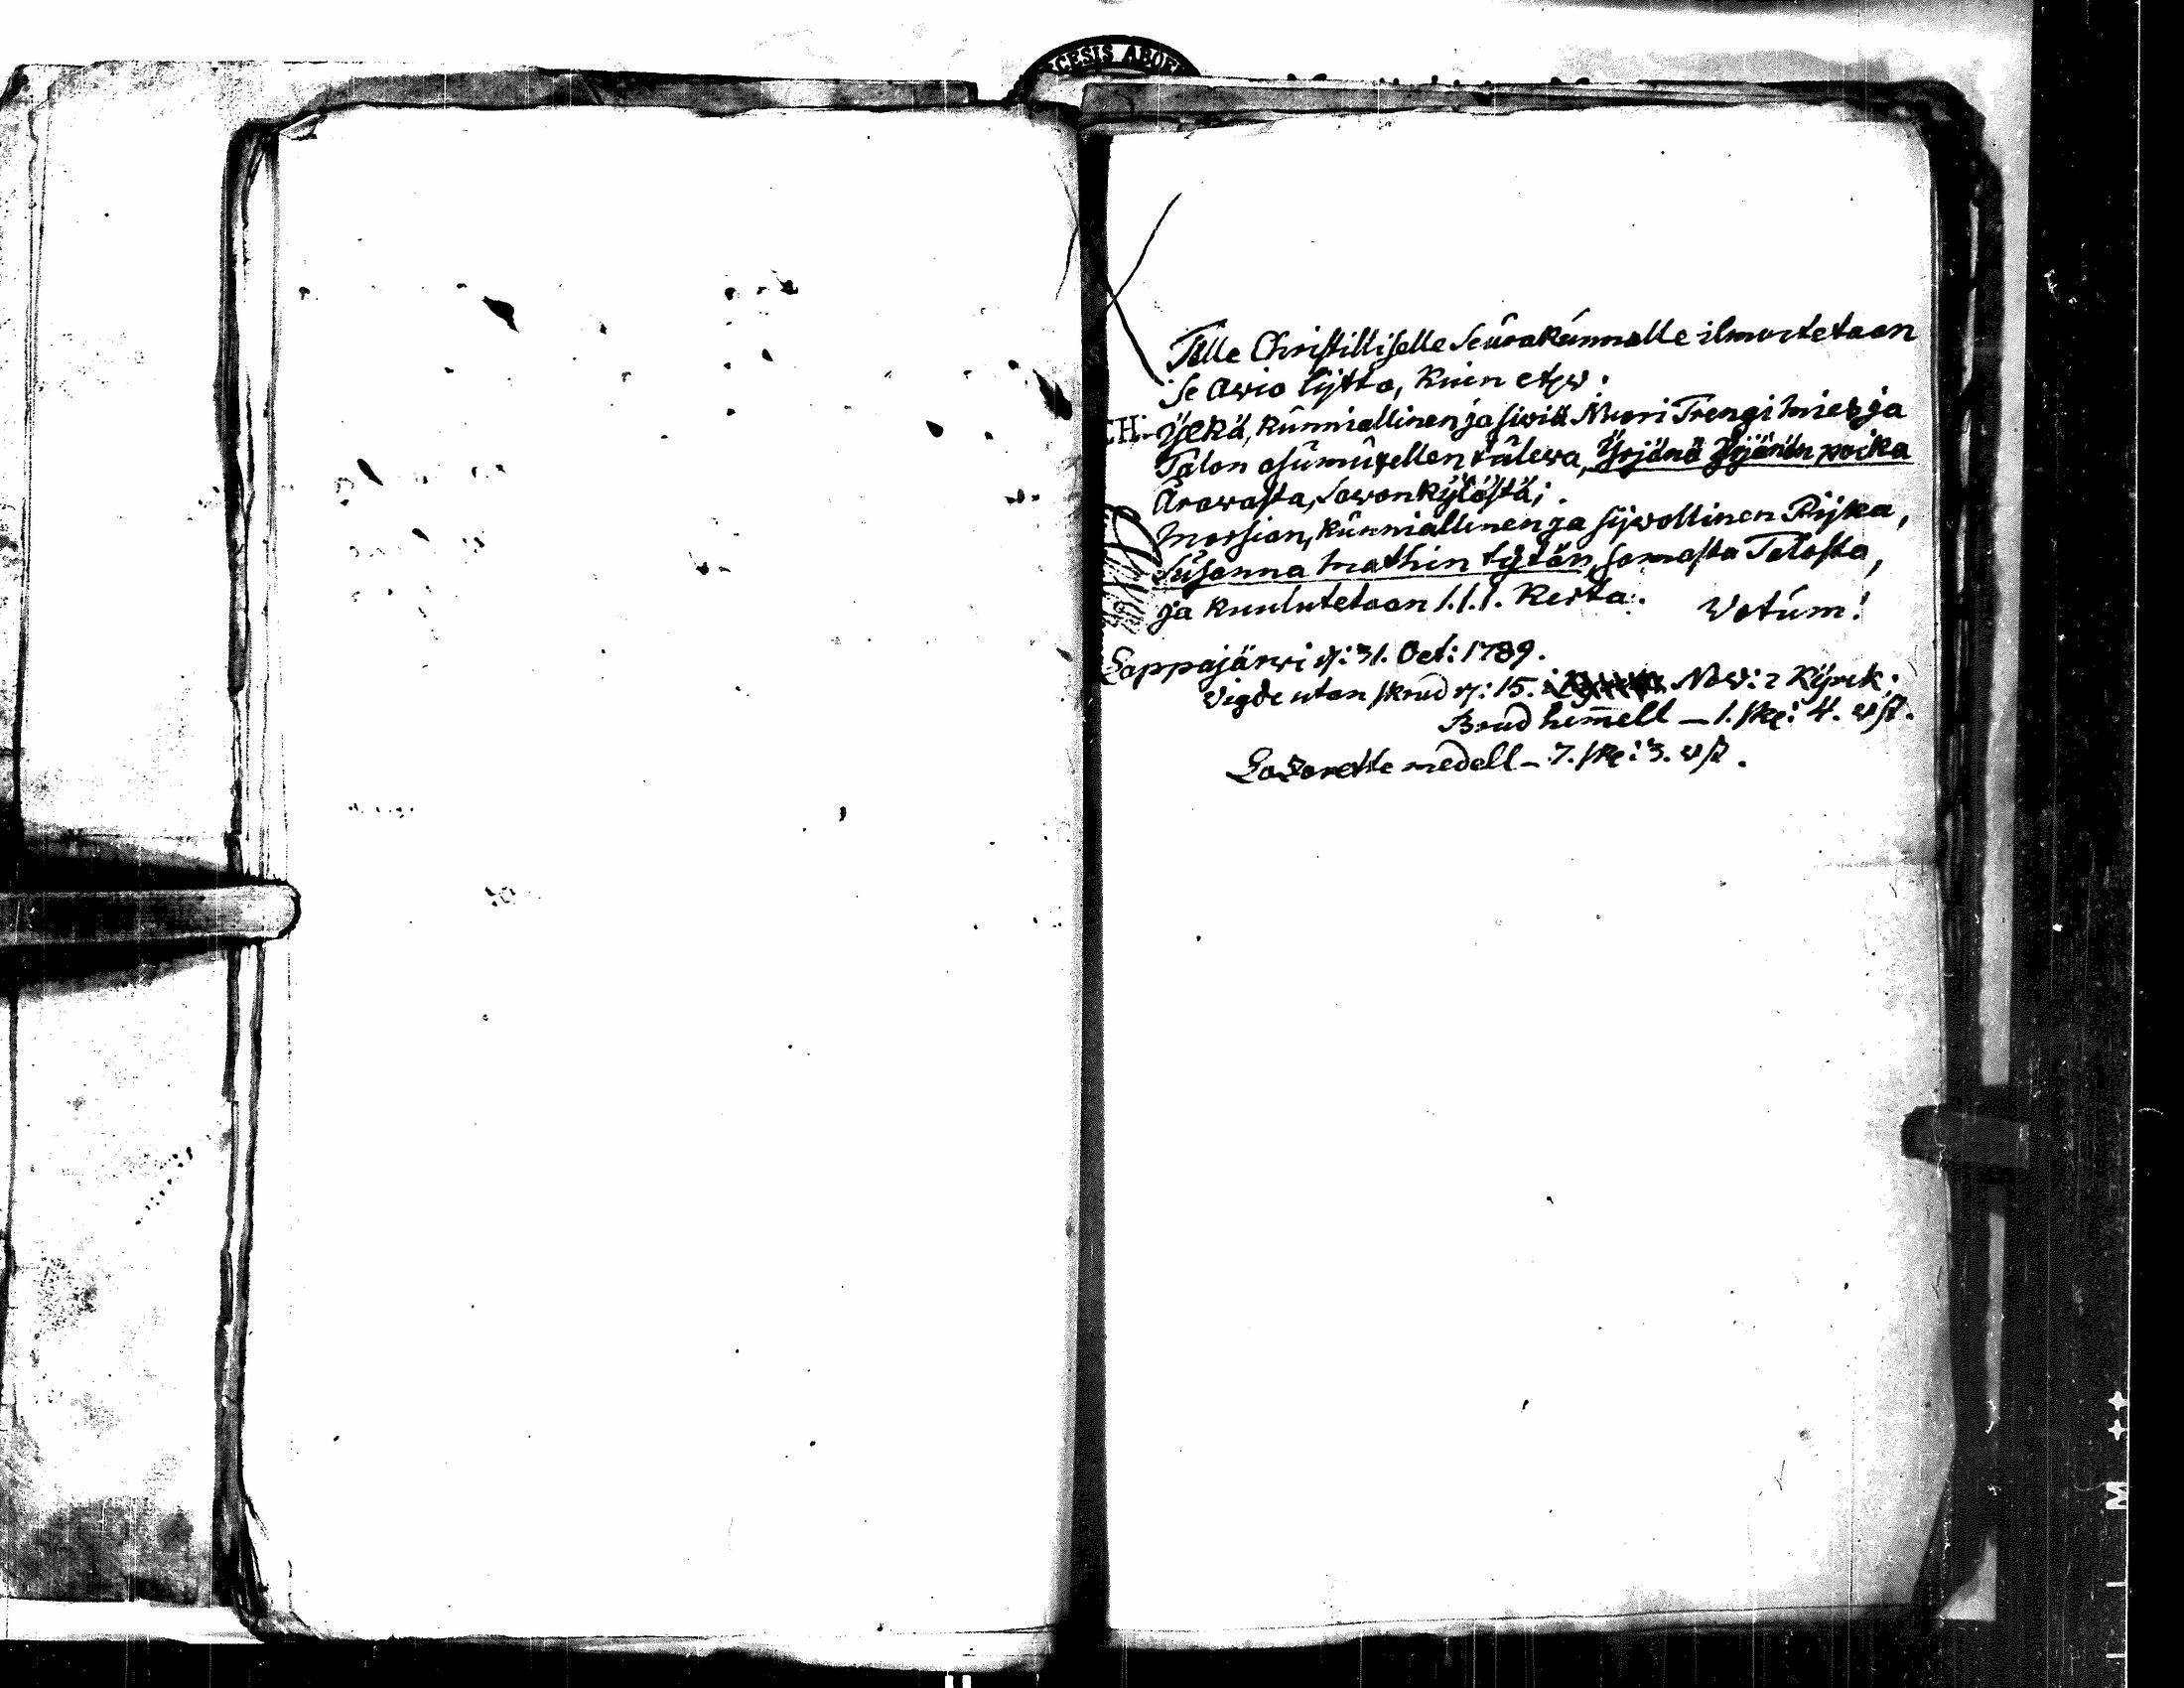 CESIS ABOE
Tälle Christilliselle Seurakunnalle ilmoitetaan
se Awio lijtto, kuin etzw:
Yljkä, kunniallinen ja siwiä Nuori Trengi mies ja
Talon asumisellen tulewa, Yrjänä Yrjänän poika
Arawasta, Sawonkylästä;
morsian, kunniallinen ja sijwollinen Pijka,
Susanna Mathin tytär, samasta Talosta,
ja kuulutetaan 1.1.1. Kerta. Votum!
Lappajärwi d: 31. Oct: 1789.
Vigde utan skrud d: 15. Nov: i Kyrck:
Brud himmell — 1. sk: 4. rst.
Lazarette medell — 7. sk: 3. rst.